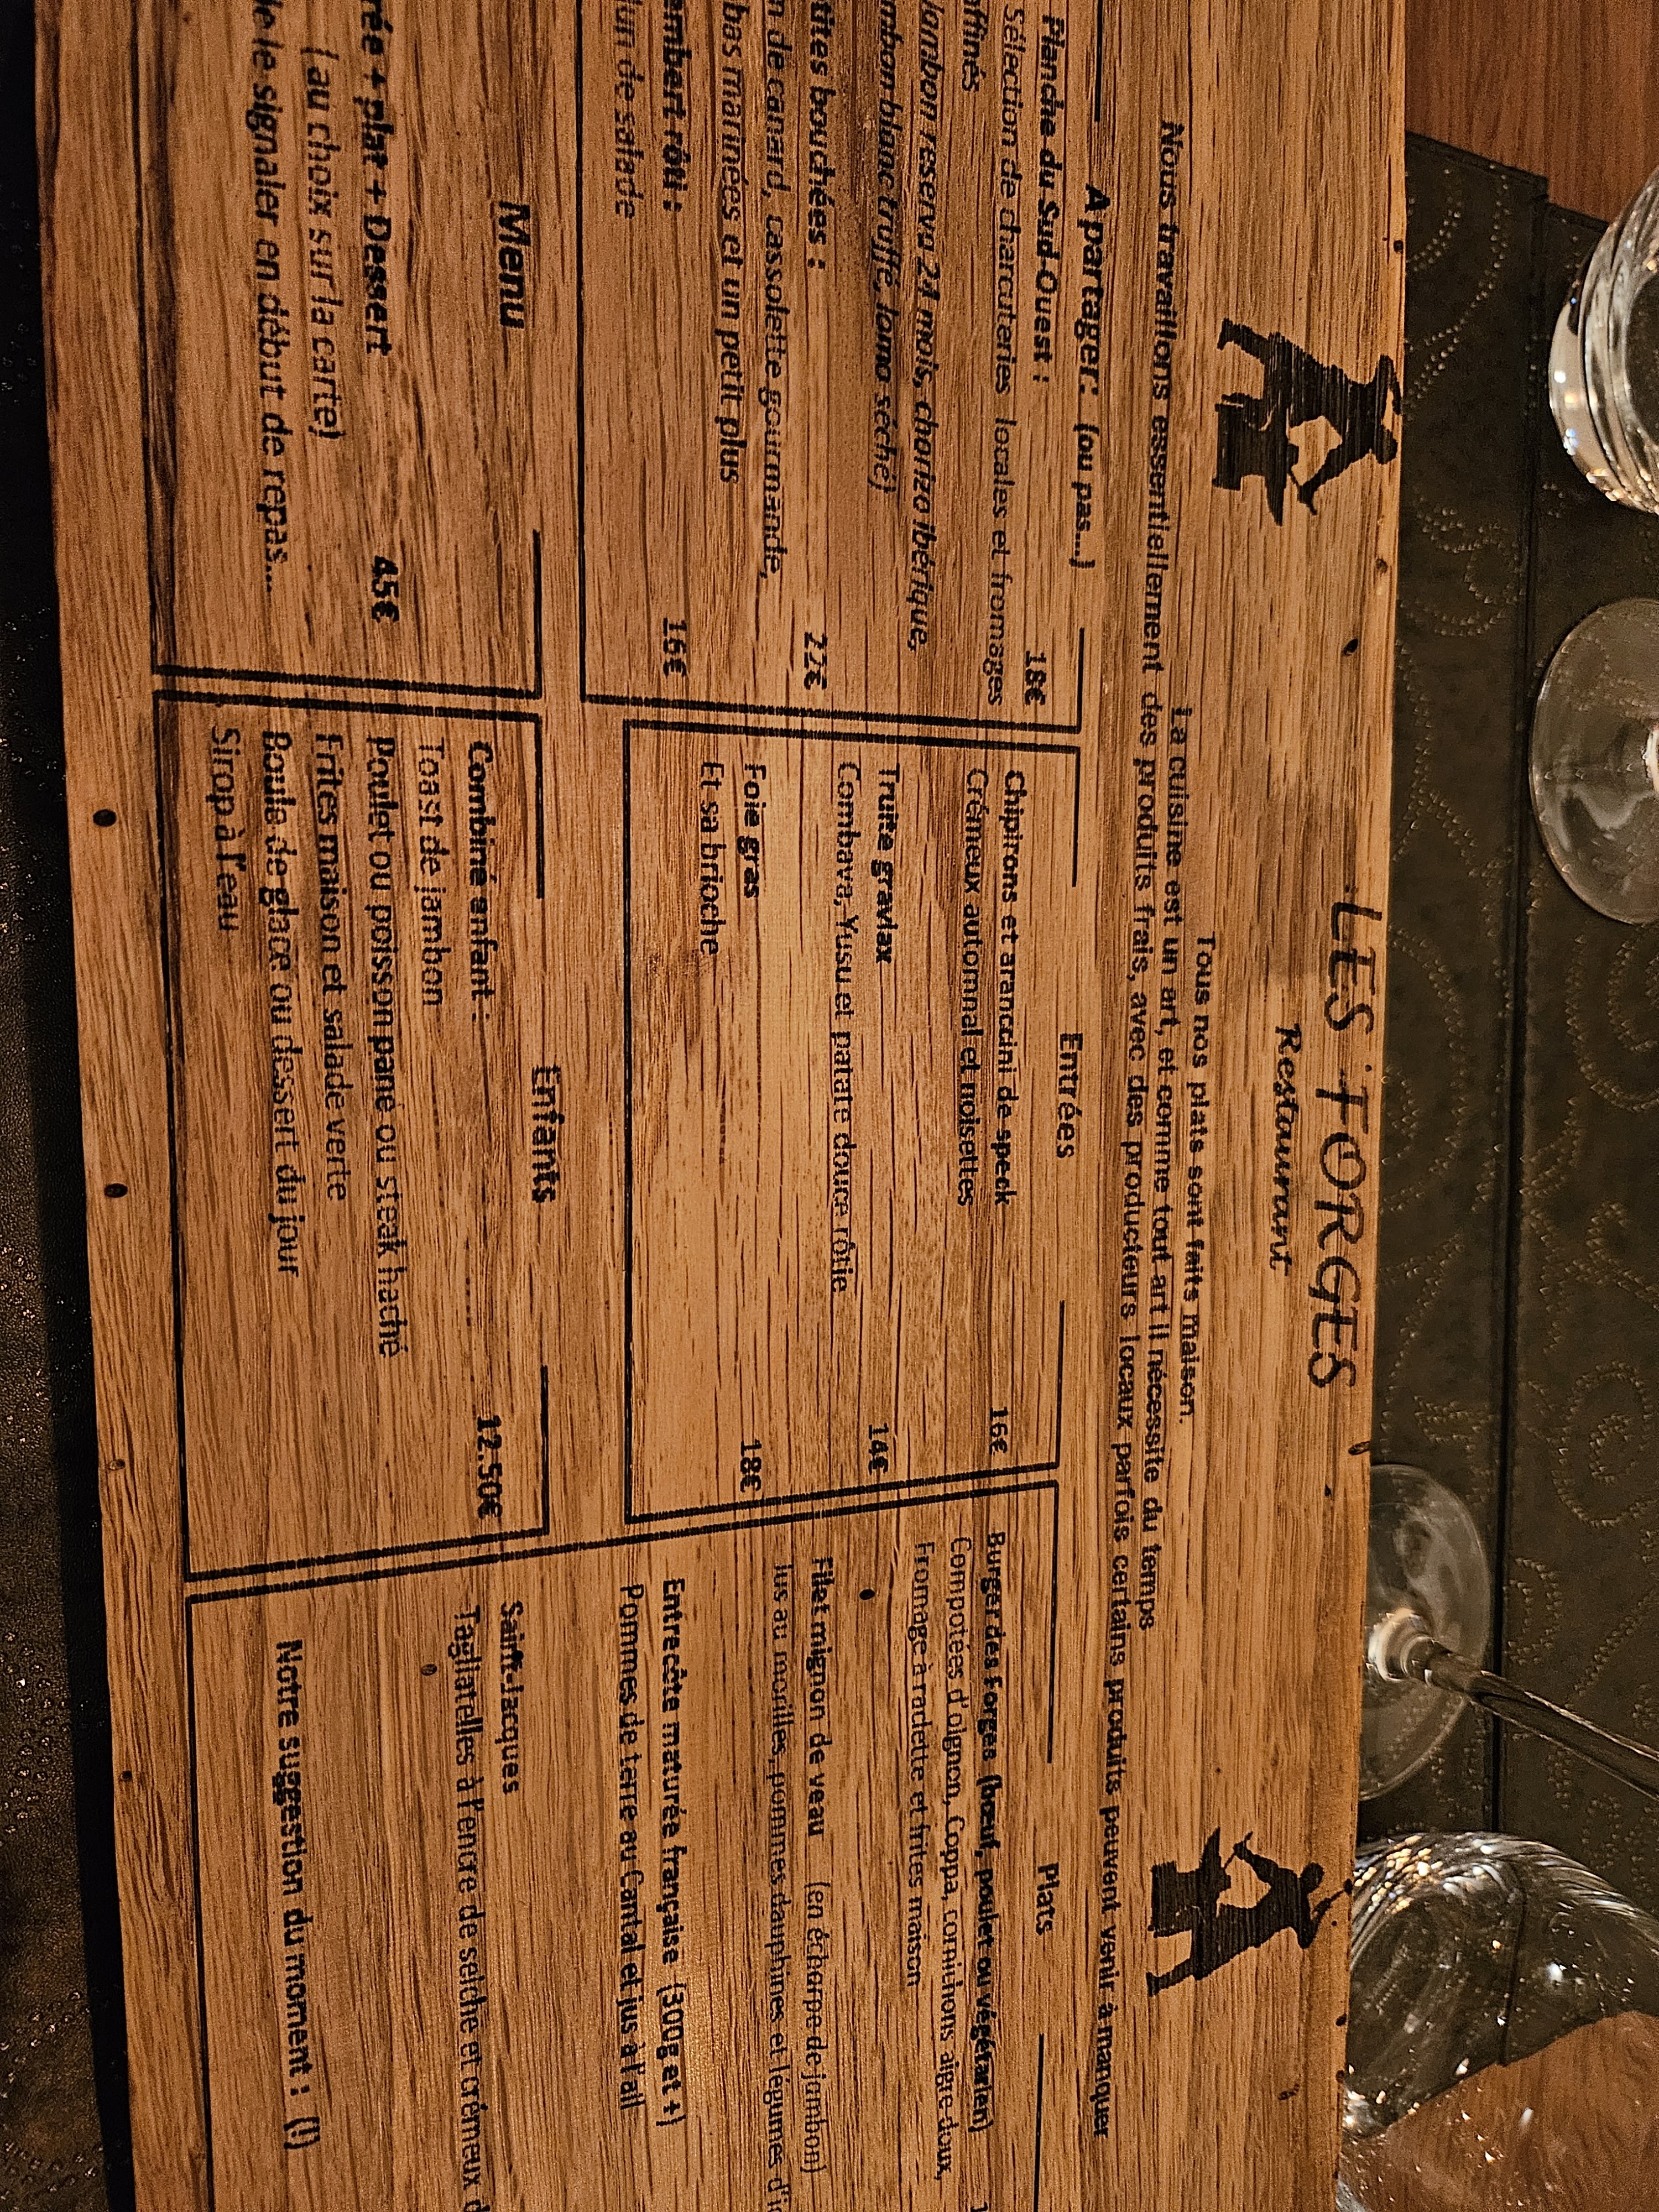 LES FORGES
Restaurant
Tous nos plats sont faits maison.
La cuisine est un art, et comme tout art il nécessite du temps
Nous travaillons essentiellement des produits frais, avec des producteurs locaux parfois certains produits peuvent venir à manquer
A partager: (ou pas...)
Planche du Sud-Ouest : 18€
Sélection de charcuteries locales et fromages
affinés
Jambon reserva 24 mois, chorizo ibérique,
blanc truffé, lomo séché)
bouchées : 22€
de canard, cassolette gourmande,
marinées et un petit plus
rôti : 16€
de salade
Entrées
Chipirons et arancini de speck 16€
Crémeux automnal et noisettes
Truite gravlax 14€
Combava, Yusu et patate douce rôtie
Foie gras 18€
Et sa brioche
Plats
Burger des Forges (bœuf, poulet ou végétarien)
Compotées d'oignon, Coppa, cornichons aigre-doux,
Fromage à raclette et frites maison
Filet mignon de veau (en écharpe de jambon)
Jus au morilles, pommes dauphines et légumes
Entrecôte maturée française (300g et +)
Pommes de terre au Cantal et jus à l'ail
Saint-Jacques
Tagliatelles à l'encre de seiche et crémeux
Notre suggestion du moment : (!)
Menu
+ plat + Dessert 45€
(au choix sur la carte)
le signaler en début de repas...
Enfants
Combiné enfant : 12.50€
Toast de jambon
Poulet ou poisson pané ou steak haché
Frites maison et salade verte
Boule de glace ou dessert du jour
Sirop à l'eau